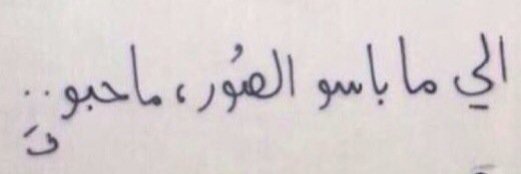 الي ما باسو الصُور، ما حبو..